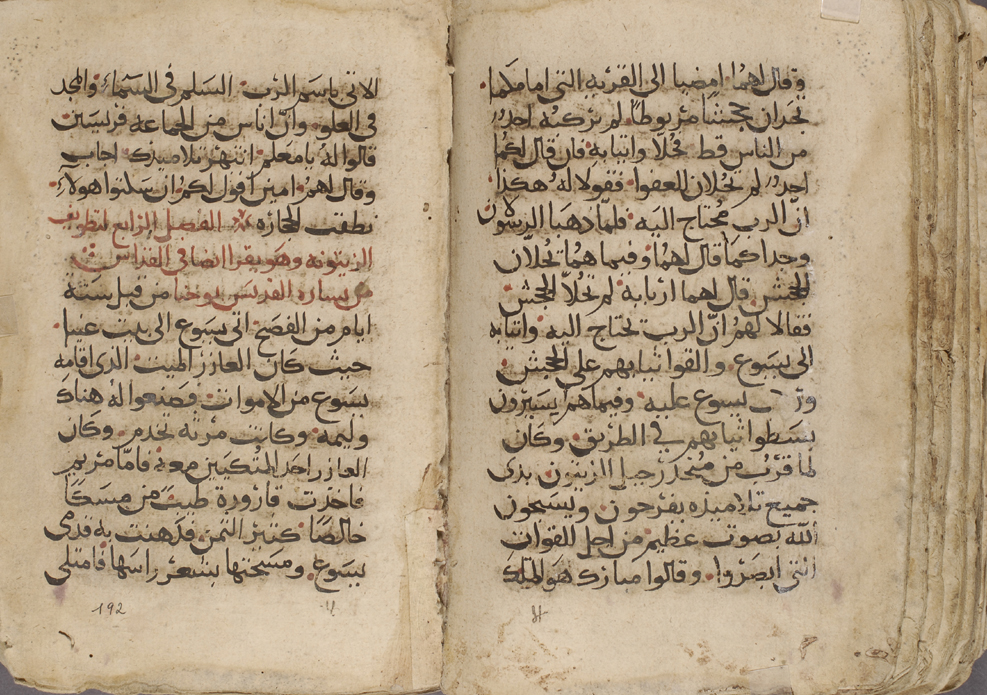 وقال لهما امضيا الى القريه التى امامكما
تجدان جحشًا مربوطًا لم يركبه احدٌ
من الناس قط فحُلاّ واتيا به فان قال لكما
احدٌ لم تحلان العفوا فقولا له هكذا
انّ الرب مُحتاج اليه فلمّا ذهبا الرسولان
وجدا كما قال لهما وفيما هما يحُلاّن
الجحش قال لهما اربابه لم تحُلاّ الجحش
فقالا لهم انّ الرب يحتاج اليه واتيا به
الى يسوع والقوا ثيابهم على الجحش
يسوع عليه وفيما هم يسيرون
بسطوا ثيابهم في الطريق وكان
لما قرُب من مُنحدر جبل الزيتون بدى
جميع تلاميذه يفرحون ويسبحون
الله بصوت عظيم من اجل القوات
التى ابصروا وقالوا مبارك هو الملك
الاتى باسم الرب السلم فى السماء والمجد
فى العلو وانّ اناس من الجماعه فريسين
قالوا لهُ يا معلم انتهر تلاميذك اجاب
وقال لهم امين اقول لكم ان سكتوا هولاء
نطقت الحجاره الفصل الرابع لتطويف
الزيتونه وهو يقرا ايضا فى القداس
من بشاره القديس يوحنا من قبل ستة
ايام من الفصح اتى يسوع الى بيت عنيا
حيث كان العازر الميت الذى اقامه
يسوع من الاموات فصنعوا له هناك
وليمه وكانت مرته تخدم وكان
العازر احد المُتكيين معه فامّا مريم
فاخذت قارورة طيب من مسكًا
خالصًا كثير الثمن فدهنت به قدمى
يسوع ومسَحتها بشعر راسها فامتلى
192